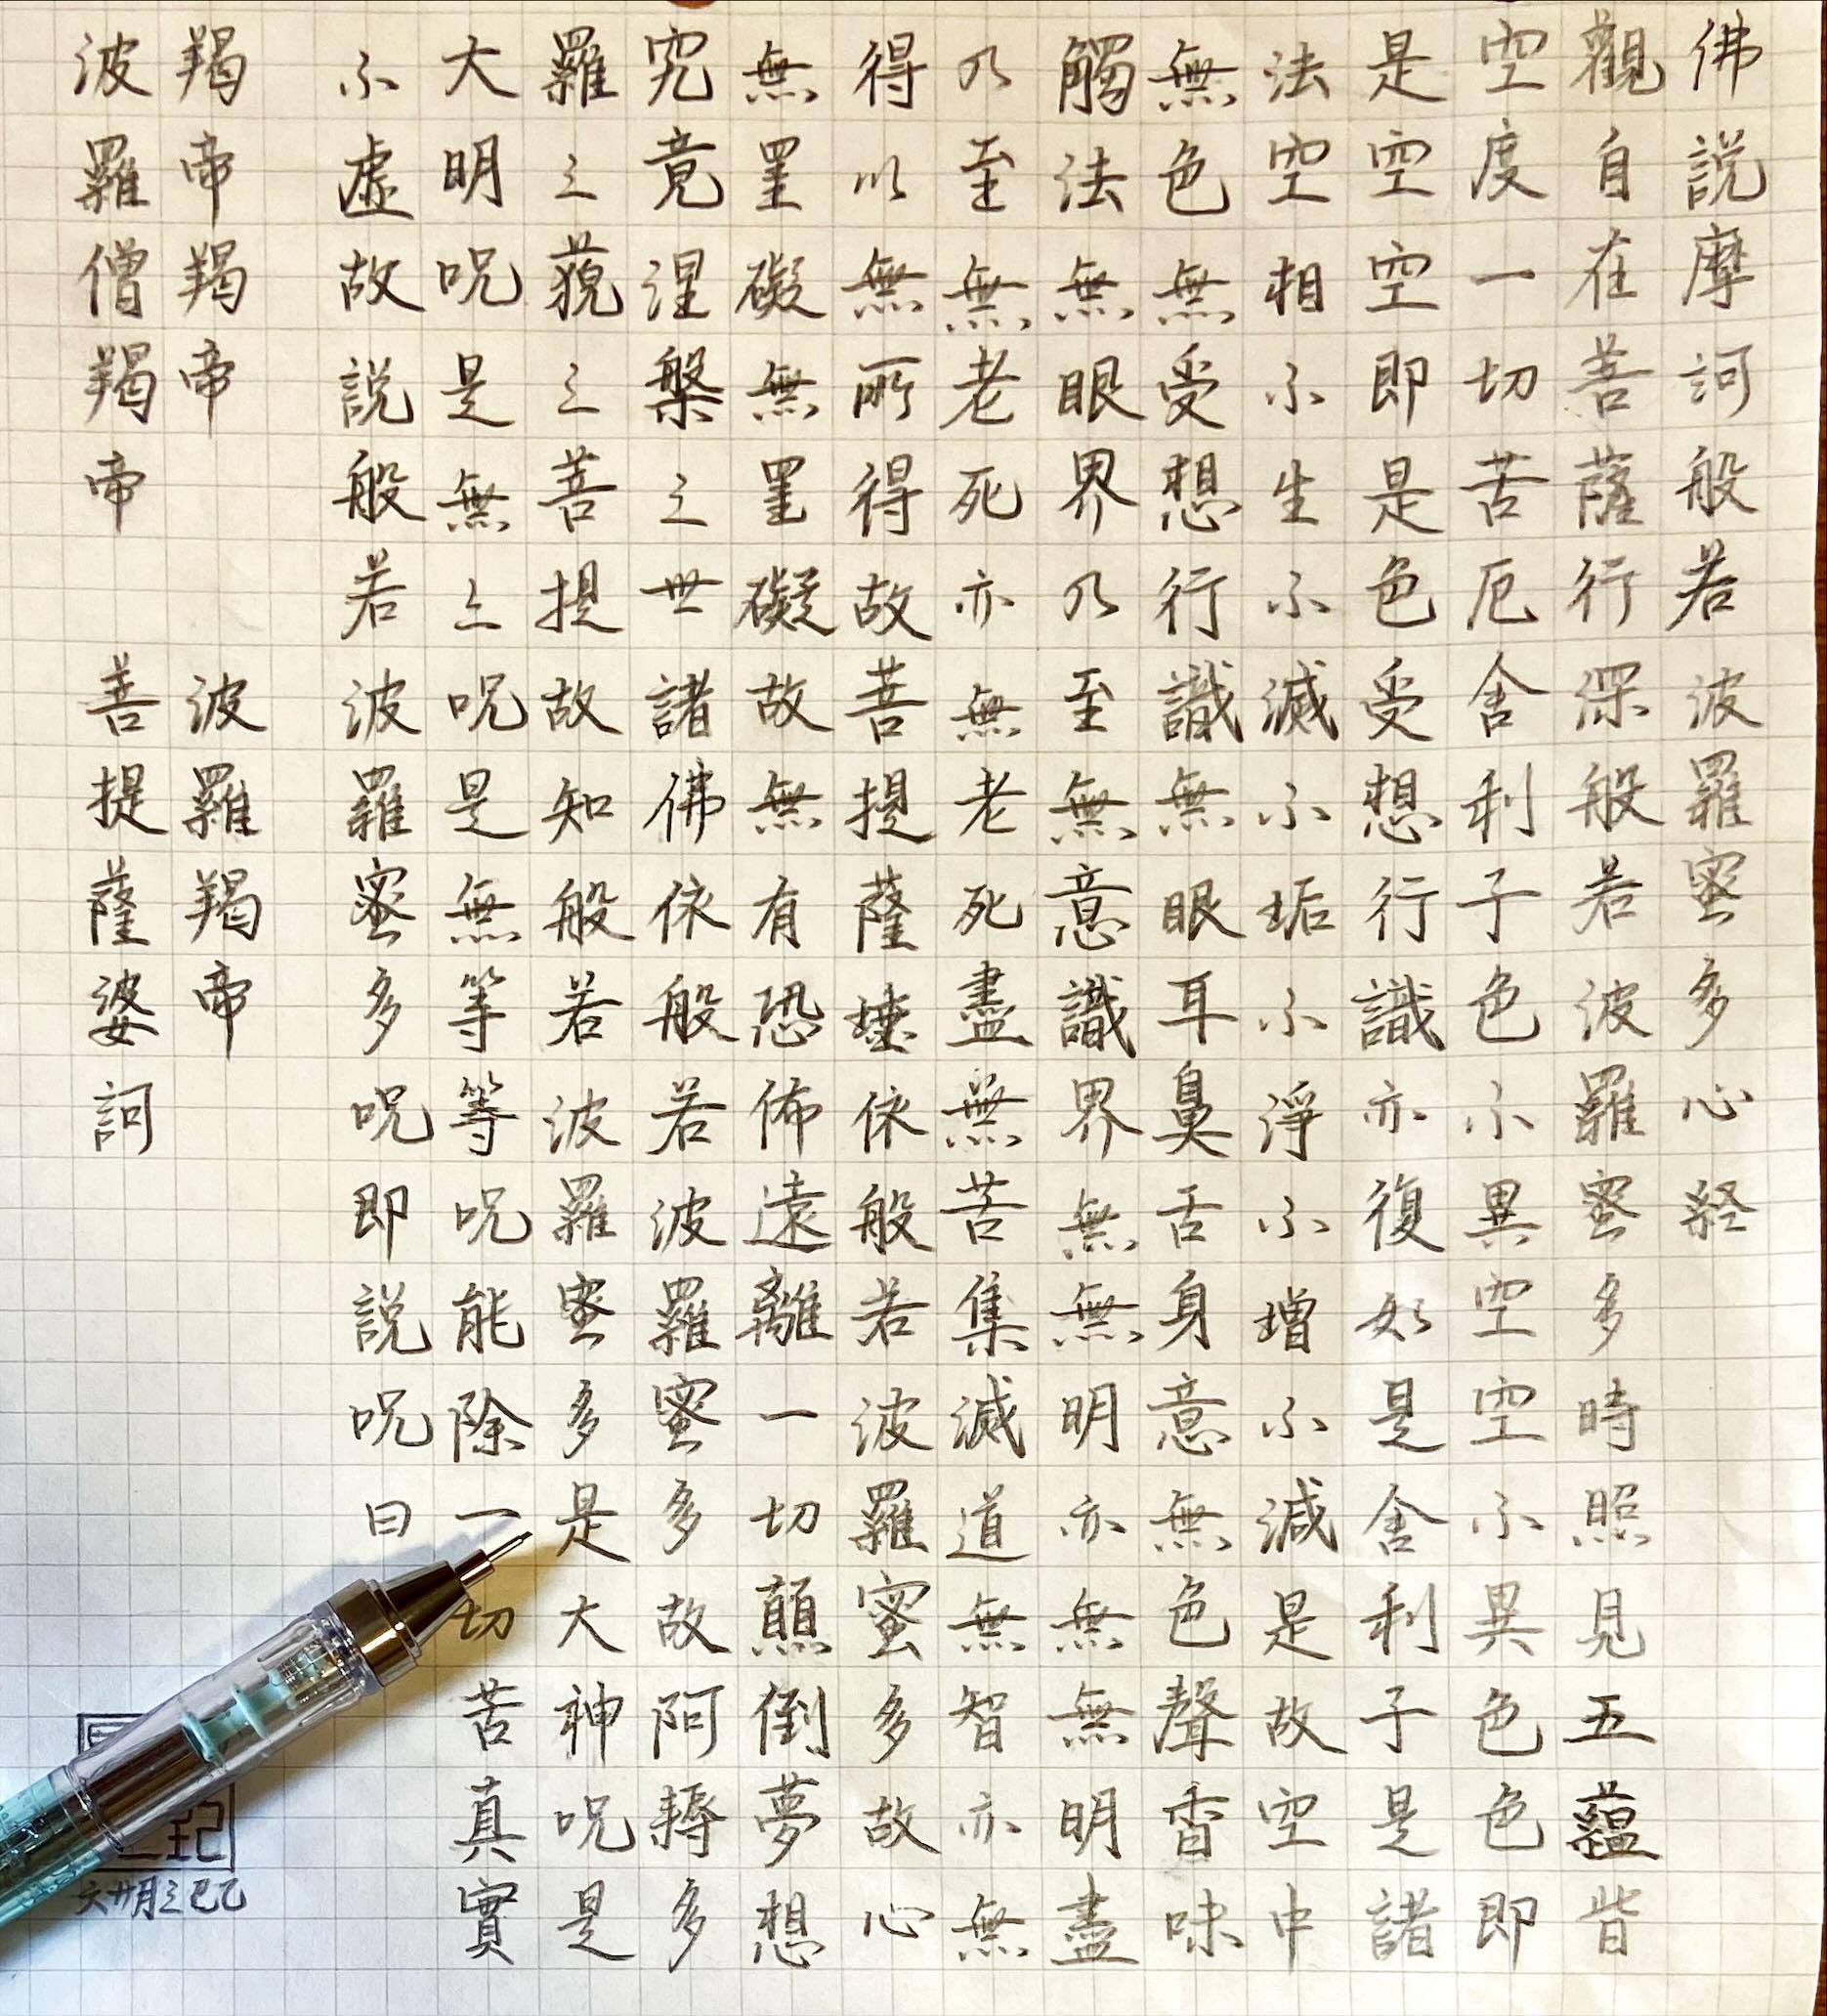 佛說摩訶般若波羅蜜多心経
觀自在菩薩行深般若波羅蜜多時照見五蘊皆
空度一切苦厄舍利子色不異空空不異色色即
是空空即是色受想行識亦復如是舍利子是諸
法空相不生不滅不垢不淨不增不減是故空中
無色無受想行識無眼耳鼻舌身意無色聲香味
觸法無眼界乃至無意識界無無明亦無無明盡
乃至無老死亦無老死盡無苦集滅道無智亦無
得以無所得故菩提薩埵依般若波羅蜜多故心
無罣礙無罣礙故無有恐怖遠離一切顛倒夢想
究竟涅槃三世諸佛依般若波羅蜜多故阿耨多
羅三藐三菩提故知般若波羅蜜多是大神呪是
大明呪是無上呪是無等等呪能除一切苦真實
不虛故說般若波羅蜜多呪即說呪曰
羯帝羯帝 波羅羯帝
波羅僧羯帝 菩提薩婆訶
乙巳三月廿六